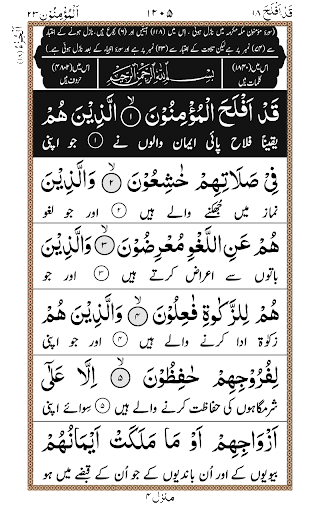 قَدْ اَفْلَحَ ۱۸ ۱۲۰۵ اَلْمُؤْمِنُوْن ۲۳
سورۂ مؤمنون مکہ مکرمہ میں نازل ہوئی۔ اس میں (۱۱۸) آیتیں اور (۶) رکوع ہیں۔ نازل ہونے کے اعتبار
سے (۷۴) نمبر پر ہے لیکن تلاوت کے اعتبار سے (۲۳) نمبر پر ہے اور سورۂ انبیاء کے بعد نازل ہوئی ہے۔
اس میں (۱۸۴۰) کلمات ہیں بِسْمِ اللهِ الرَّحْمٰنِ الرَّحِيْمِ اس میں (۴۸۰۲) حروف ہیں
قَدْ اَفْلَحَ الْمُؤْمِنُوْنَ ۙ﴿۱﴾ الَّذِيْنَ هُمْ
یقیناً فلاح پائی ایمان والوں نے ۱ جو اپنی
فِيْ صَلَاتِهِمْ خٰشِعُوْنَ ۙ﴿۲﴾ وَالَّذِيْنَ
نماز میں جُھکنے والے ہیں ۲ اور جو لغو
هُمْ عَنِ اللَّغْوِ مُعْرِضُوْنَ ۙ﴿۳﴾ وَالَّذِيْنَ
باتوں سے اعراض کرتے ہیں ۳ اور جو
هُمْ لِلزَّكٰوةِ فٰعِلُوْنَ ۙ﴿۴﴾ وَالَّذِيْنَ هُمْ
زکوٰۃ ادا کرنے والے ہیں ۴ اور جو اپنی
لِفُرُوْجِهِمْ حٰفِظُوْنَ ۙ﴿۵﴾ اِلَّا عَلٰٓى
شرمگاہوں کی حفاظت کرنے والے ہیں ۵ سوائے اپنی
اَزْوَاجِهِمْ اَوْ مَا مَلَكَتْ اَيْمَانُهُمْ
بیویوں کے اور اُن باندیوں کے جو اُن کے قبضے میں ہو
منزل ۴